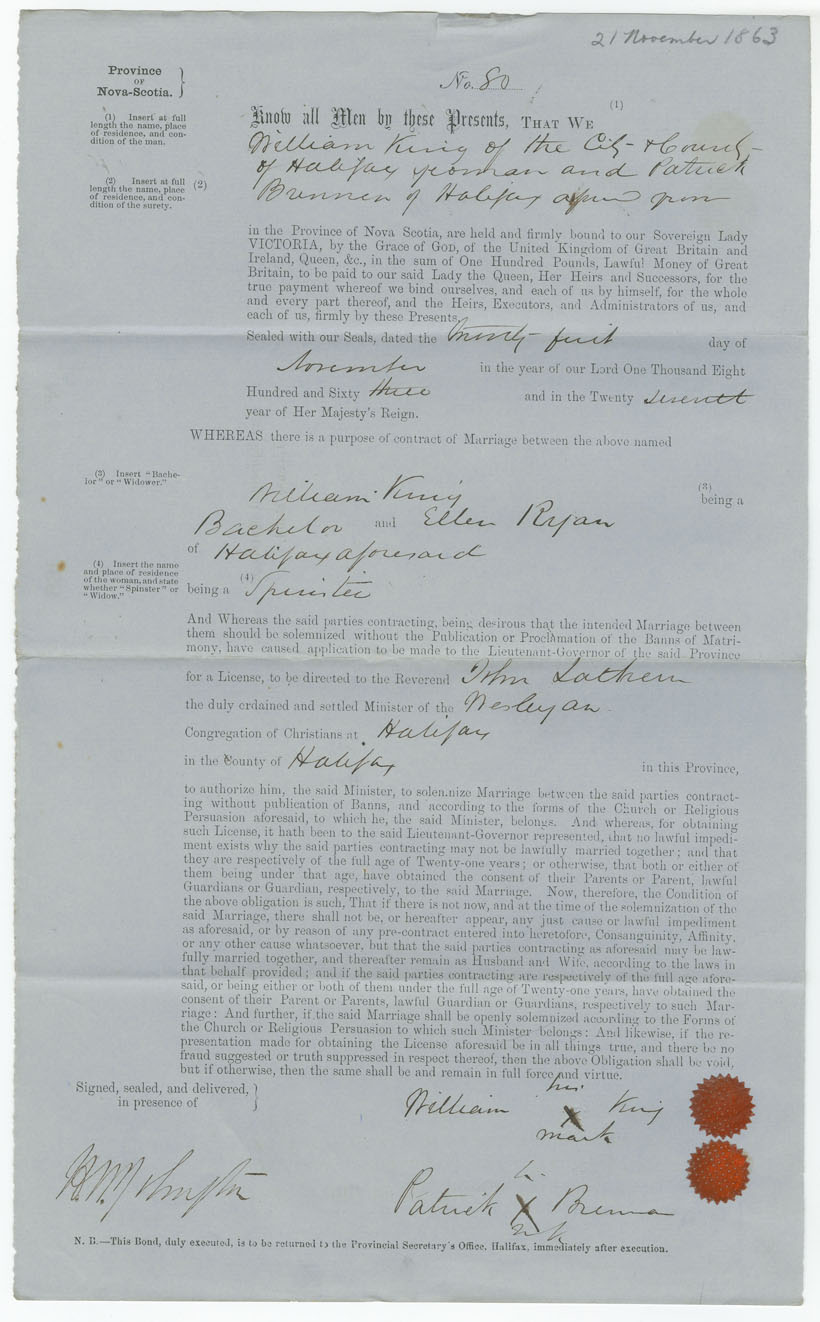 21 November 1863
Province
OF
Nova-Scotia.
No. 80
(1) Insert at full
length the name, place
of residence, and con-
dition of the man.
Know all Men by these Presents, THAT WE (1)
William King of the City & County
of Halifax yeoman and Patrick
(2) Insert at full
length the name, place
of residence, and con-
dition of the surety.
(2) Brennen of Halifax
in the Province of Nova Scotia, are held and firmly bound to our Sovereign Lady
VICTORIA, by the Grace of GOD, of the United Kingdom of Great Britain and
Ireland, Queen, &c., in the sum of One Hundred Pounds, Lawful Money of Great
Britain, to be paid to our said Lady the Queen, Her Heirs and Successors, for the
true payment whereof we bind ourselves, and each of us by himself, for the whole
and every part thereof, and the Heirs, Executors, and Administrators of us, and
each of us, firmly by these Presents.
Sealed with our Seals, dated the twenty first day of
November in the year of our Lord One Thousand Eight
Hundred and Sixty three and in the Twenty seventh
year of Her Majesty's Reign.
WHEREAS there is a purpose of contract of Marriage between the above named
(3) Insert "Bache-
lor" or "Widower."
William King (3) being a
Bachelor and Ellen Ryan
of Halifax aforesaid
(4) Insert the name
and place of residence
of the woman, and state
whether "Spinster" or
"Widow."
being a (4) Spinster
And Whereas the said parties contracting, being desirous that the intended Marriage between
them should be solemnized without the Publication or Proclamation of the Banns of Matri-
mony, have caused application to be made to the Lieutenant-Governor of the said Province
for a License, to be directed to the Reverend John Lathern
the duly ordained and settled Minister of the Wesleyan
Congregation of Christians at Halifax
in the County of Halifax in this Province,
to authorize him, the said Minister, to solemnize Marriage between the said parties contract-
ing without publication of Banns, and according to the forms of the Church or Religious
Persuasion aforesaid, to which he, the said Minister, belongs. And whereas, for obtaining
such License, it hath been to the said Lieutenant-Governor represented, that no lawful impedi-
ment exists why the said parties contracting may not be lawfully married together; and that
they are respectively of the full age of Twenty-one years; or otherwise, that both or either of
them being under that age, have obtained the consent of their Parents or Parent, lawful
Guardians or Guardian, respectively, to the said Marriage. Now, therefore, the Condition of
the above obligation is such, That if there is not now, and at the time of the solemnization of the
said Marriage, there shall not be, or hereafter appear, any just cause or lawful impediment
as aforesaid, or by reason of any pre-contract entered into heretofore, Consanguinity, Affinity,
or any other cause whatsoever, but that the said parties contracting as aforesaid may be law-
fully married together, and thereafter remain as Husband and Wife, according to the laws in
that behalf provided; and if the said parties contracting are respectively of the full age afore-
said, or being either or both of them under the full age of Twenty-one years, have obtained the
consent of their Parent or Parents, lawful Guardian or Guardians, respectively to such Mar-
riage: And further, if the said Marriage shall be openly solemnized according to the Forms of
the Church or Religious Persuasion to which such Minister belongs: And likewise, if the re-
presentation made for obtaining the License aforesaid be in all things true, and there be no
fraud suggested or truth suppressed in respect thereof, then the above Obligation shall be void,
but if otherwise, then the same shall be and remain in full force and virtue.
Signed, sealed, and delivered,
in presence of
his
William X King
mark
Patrick X Brennan
N. B.—This Bond, duly executed, is to be returned to the Provincial Secretary's Office, Halifax, immediately after execution.